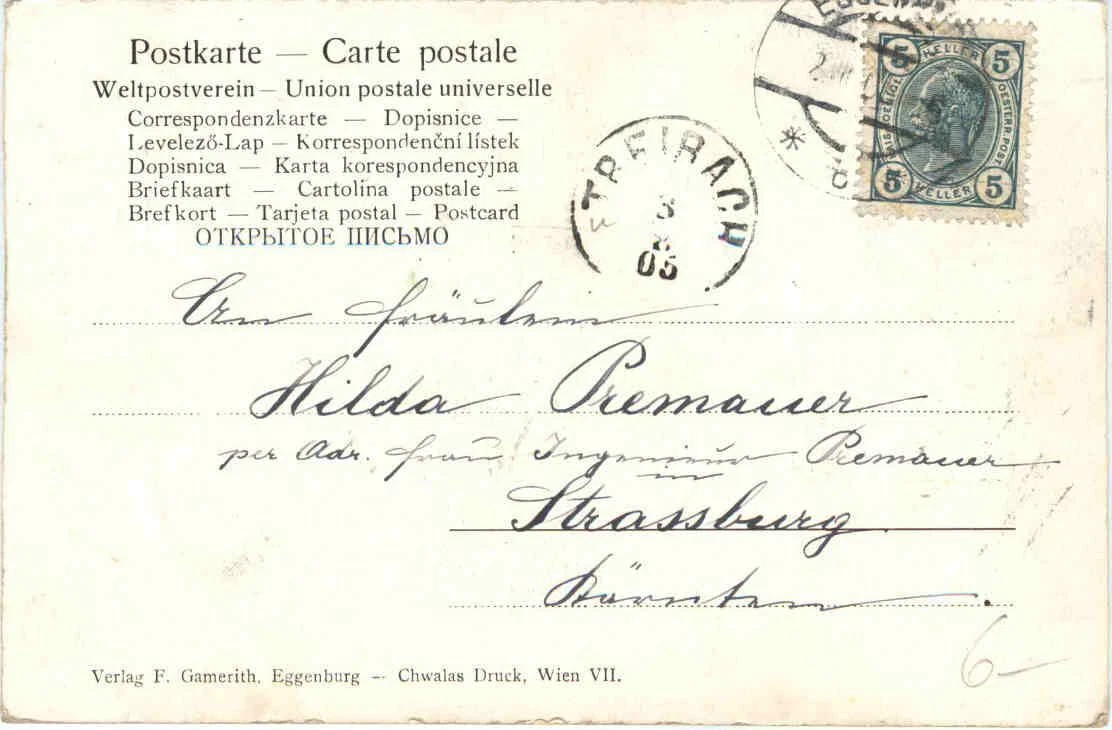 Postkarte — Carte postale
Weltpostverein — Union postale universelle
Correspondenzkarte — Dopisnice —
Levelező-Lap — Korrespondenční lístek
Dopisnica — Karta korespondencyjna
Briefkaart — Cartolina postale —
Brefkort — Tarjeta postal — Postcard
ОТКРЫТОЕ ПИСЬМО
TREIBACH
3
8
05
5 HELLER 5
OESTERR. POST
5 HELLER 5
An Fräulein
Hilda Premauer
per Adr. Frau Ingenieur Premauer
Strassburg
Kärnten.
6-
Verlag F. Gamerith, Eggenburg — Chwalas Druck, Wien VII.